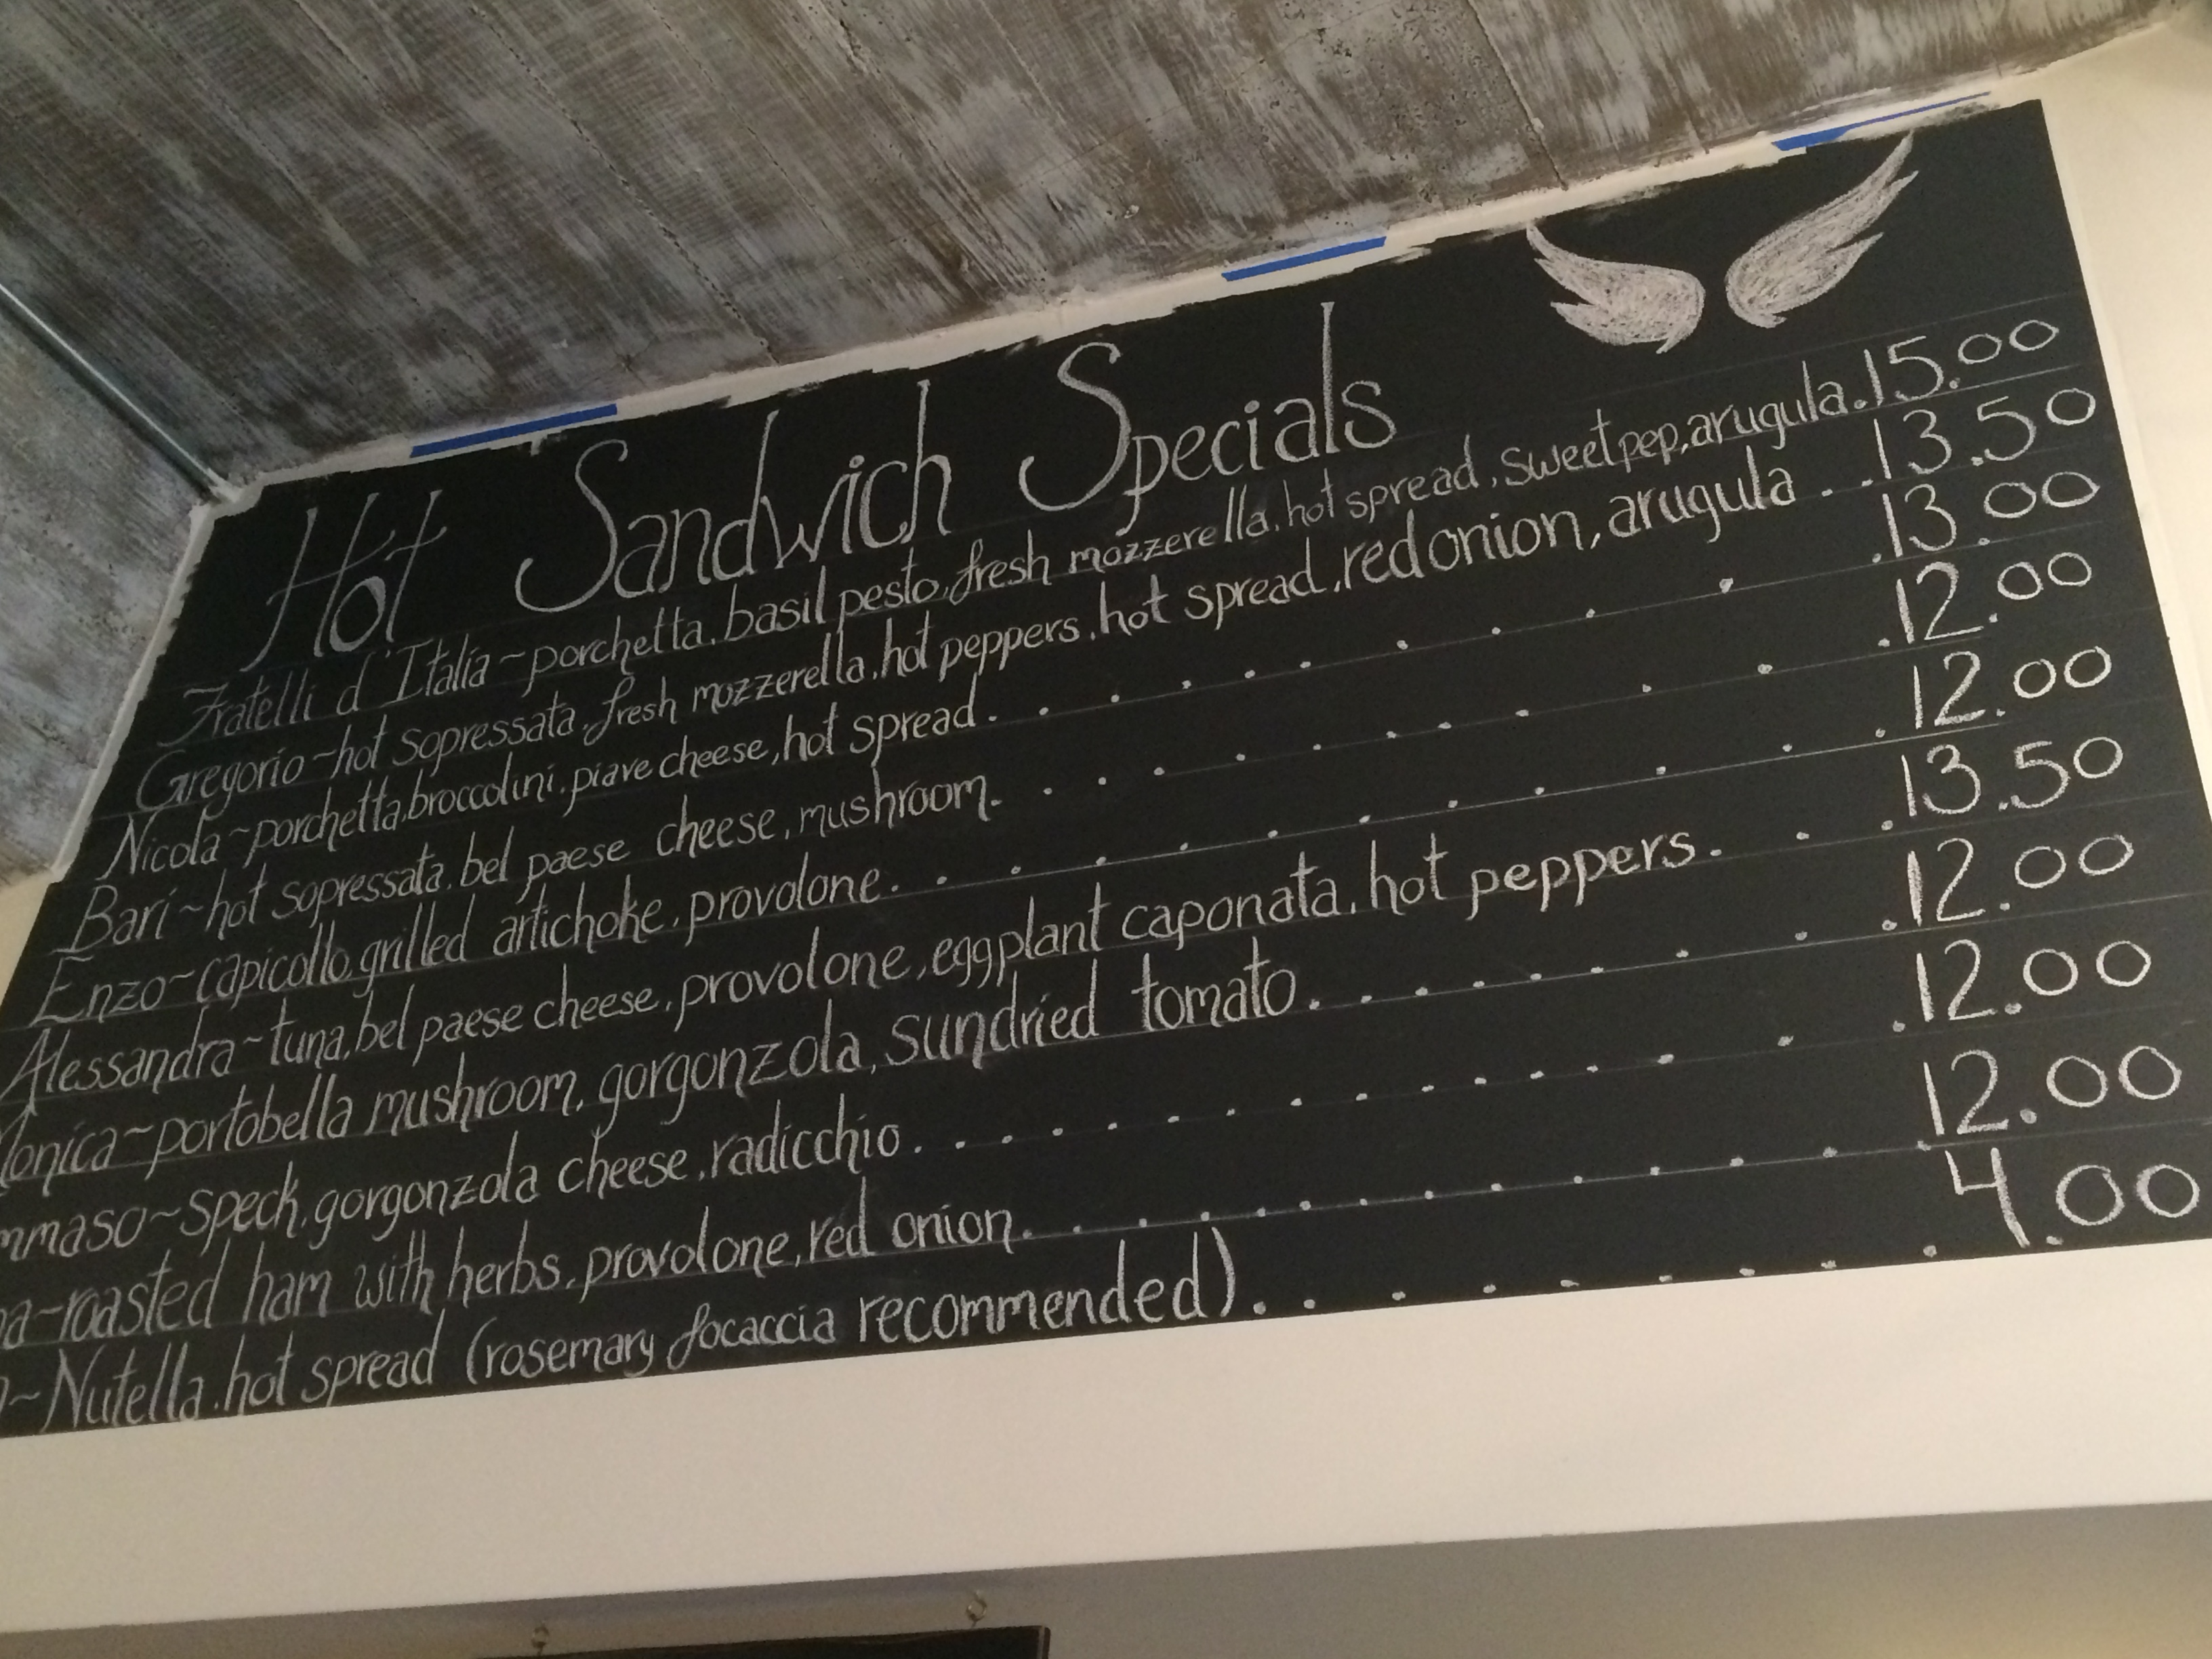 Hot Sandwich Specials
Fratelli d'Italia~porchetta, basil pesto, fresh mozzerella, hot spread, sweet pep, arugula.15.00
Gregorio~hot sopressata, fresh mozzerella, hot peppers, hot spread, red onion, arugula . .13.50
Nicola~porchetta, broccolini, piave cheese, hot spread. . . . . . . . . . .13.00
Bari~hot sopressata, bel paese cheese, mushroom. . . . . . . . . . .12.00
Enzo~capicollo, grilled artichoke, provolone. . . . . . . . . . . .12.00
Alessandra~tuna, bel paese cheese, provolone, eggplant caponata, hot peppers. . .13.50
Monica~portobella mushroom, gorgonzola, sundried tomato. . . . . . . .12.00
mmaso~speck, gorgonzola cheese, radicchio. . . . . . . . . . . . .12.00
na~roasted ham with herbs, provolone, red onion. . . . . . . . . . . .12.00
~Nutella, hot spread (rosemary focaccia recommended). . . . . . . .4.00